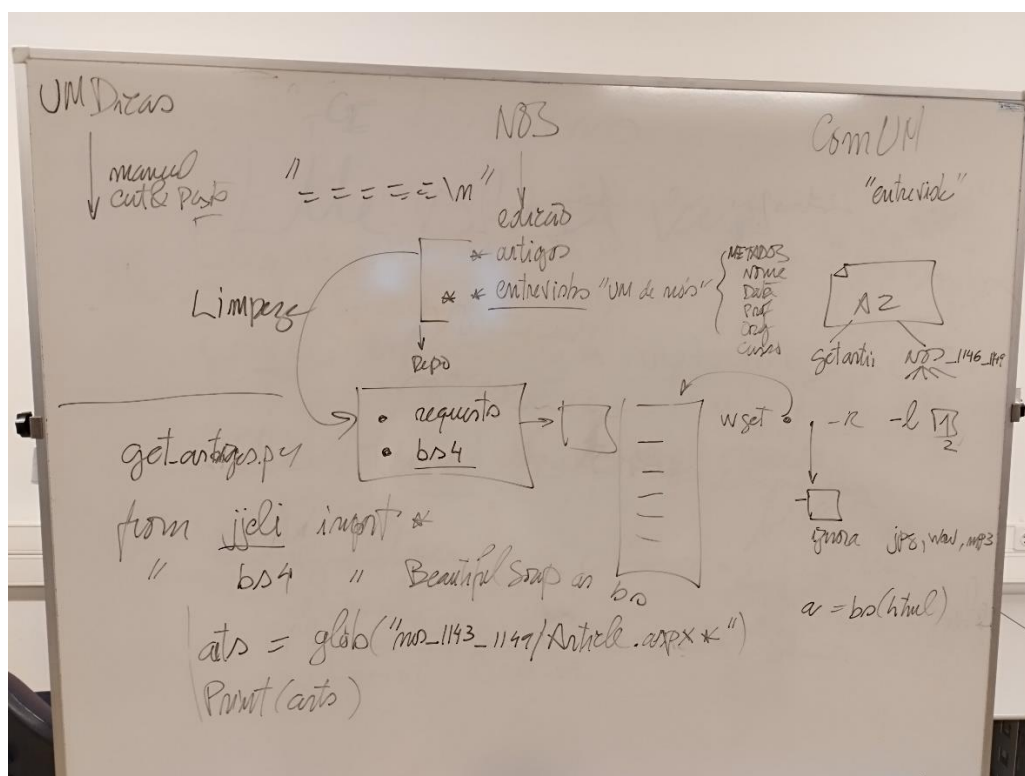 UMDicas
manual
cut & Paste
"=====\n"
NÓS
edição
* artigos
* * entrevistas "UM de nós"
Repo
Limpeza
METADOS
Nome
Data
Prof
Org
Curso
ComUM
"entrevista"
A2
getarti
NOS_1146_1149
• requests
• bs4
wget • . -r -l 1
2
ignora jpg, wav, mp3
get_artigos.py
from jjcli import *
" bs4 " BeautifulSoup as bs
a = bs(html)
arts = glob("nos_1143_1149/Article.aspx*")
Print(arts)